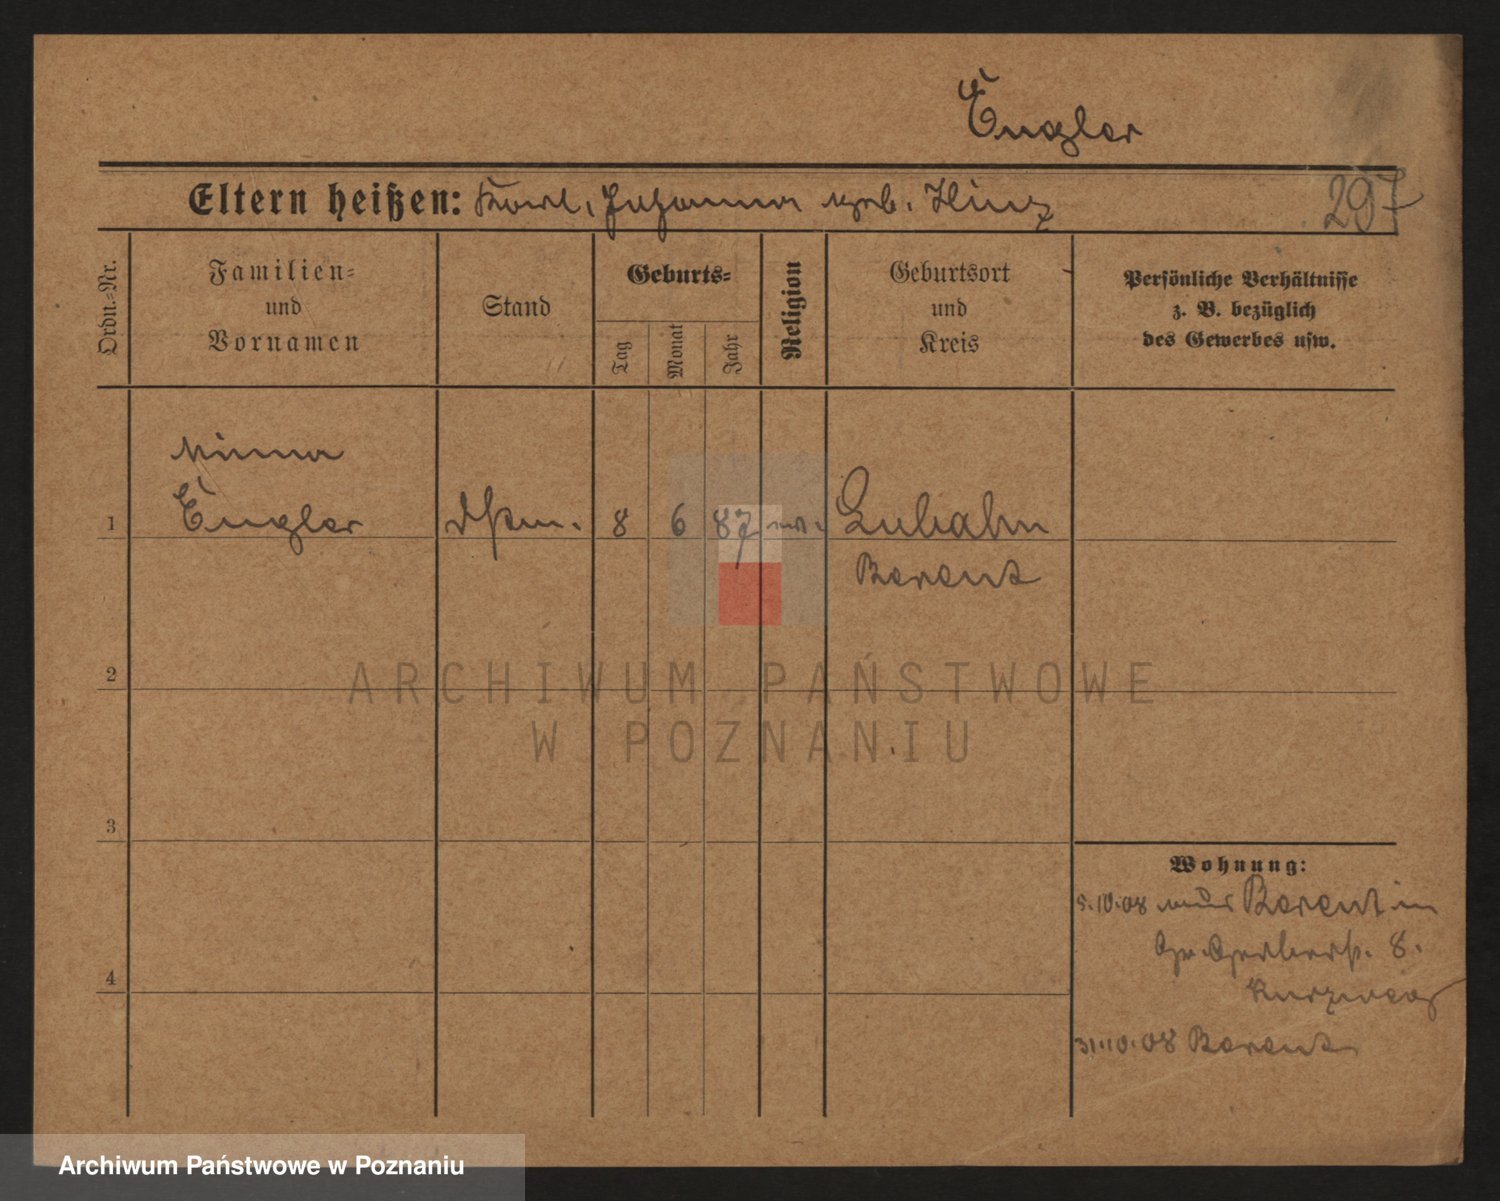 Engler
Eltern heißen: Karl, Johanna geb. Hinz
297
Ordn.-Nr.
Familien-
und
Vornamen
Stand
Geburts-
Tag
Monat
Jahr
Religion
Geburtsort
und
Kreis
Persönliche Verhältnisse
z. B. bezüglich
des Gewerbes usw.
Minna
1 Engler 8 6 87 Lubahn
Berent
2
3
4
Wohnung:
5.10.08 aus Berent in
Gr. Gerberst. 8.
31.10.08 Berent
ARCHIWUM PAŃSTWOWE
W POZNANIU
Archiwum Państwowe w Poznaniu